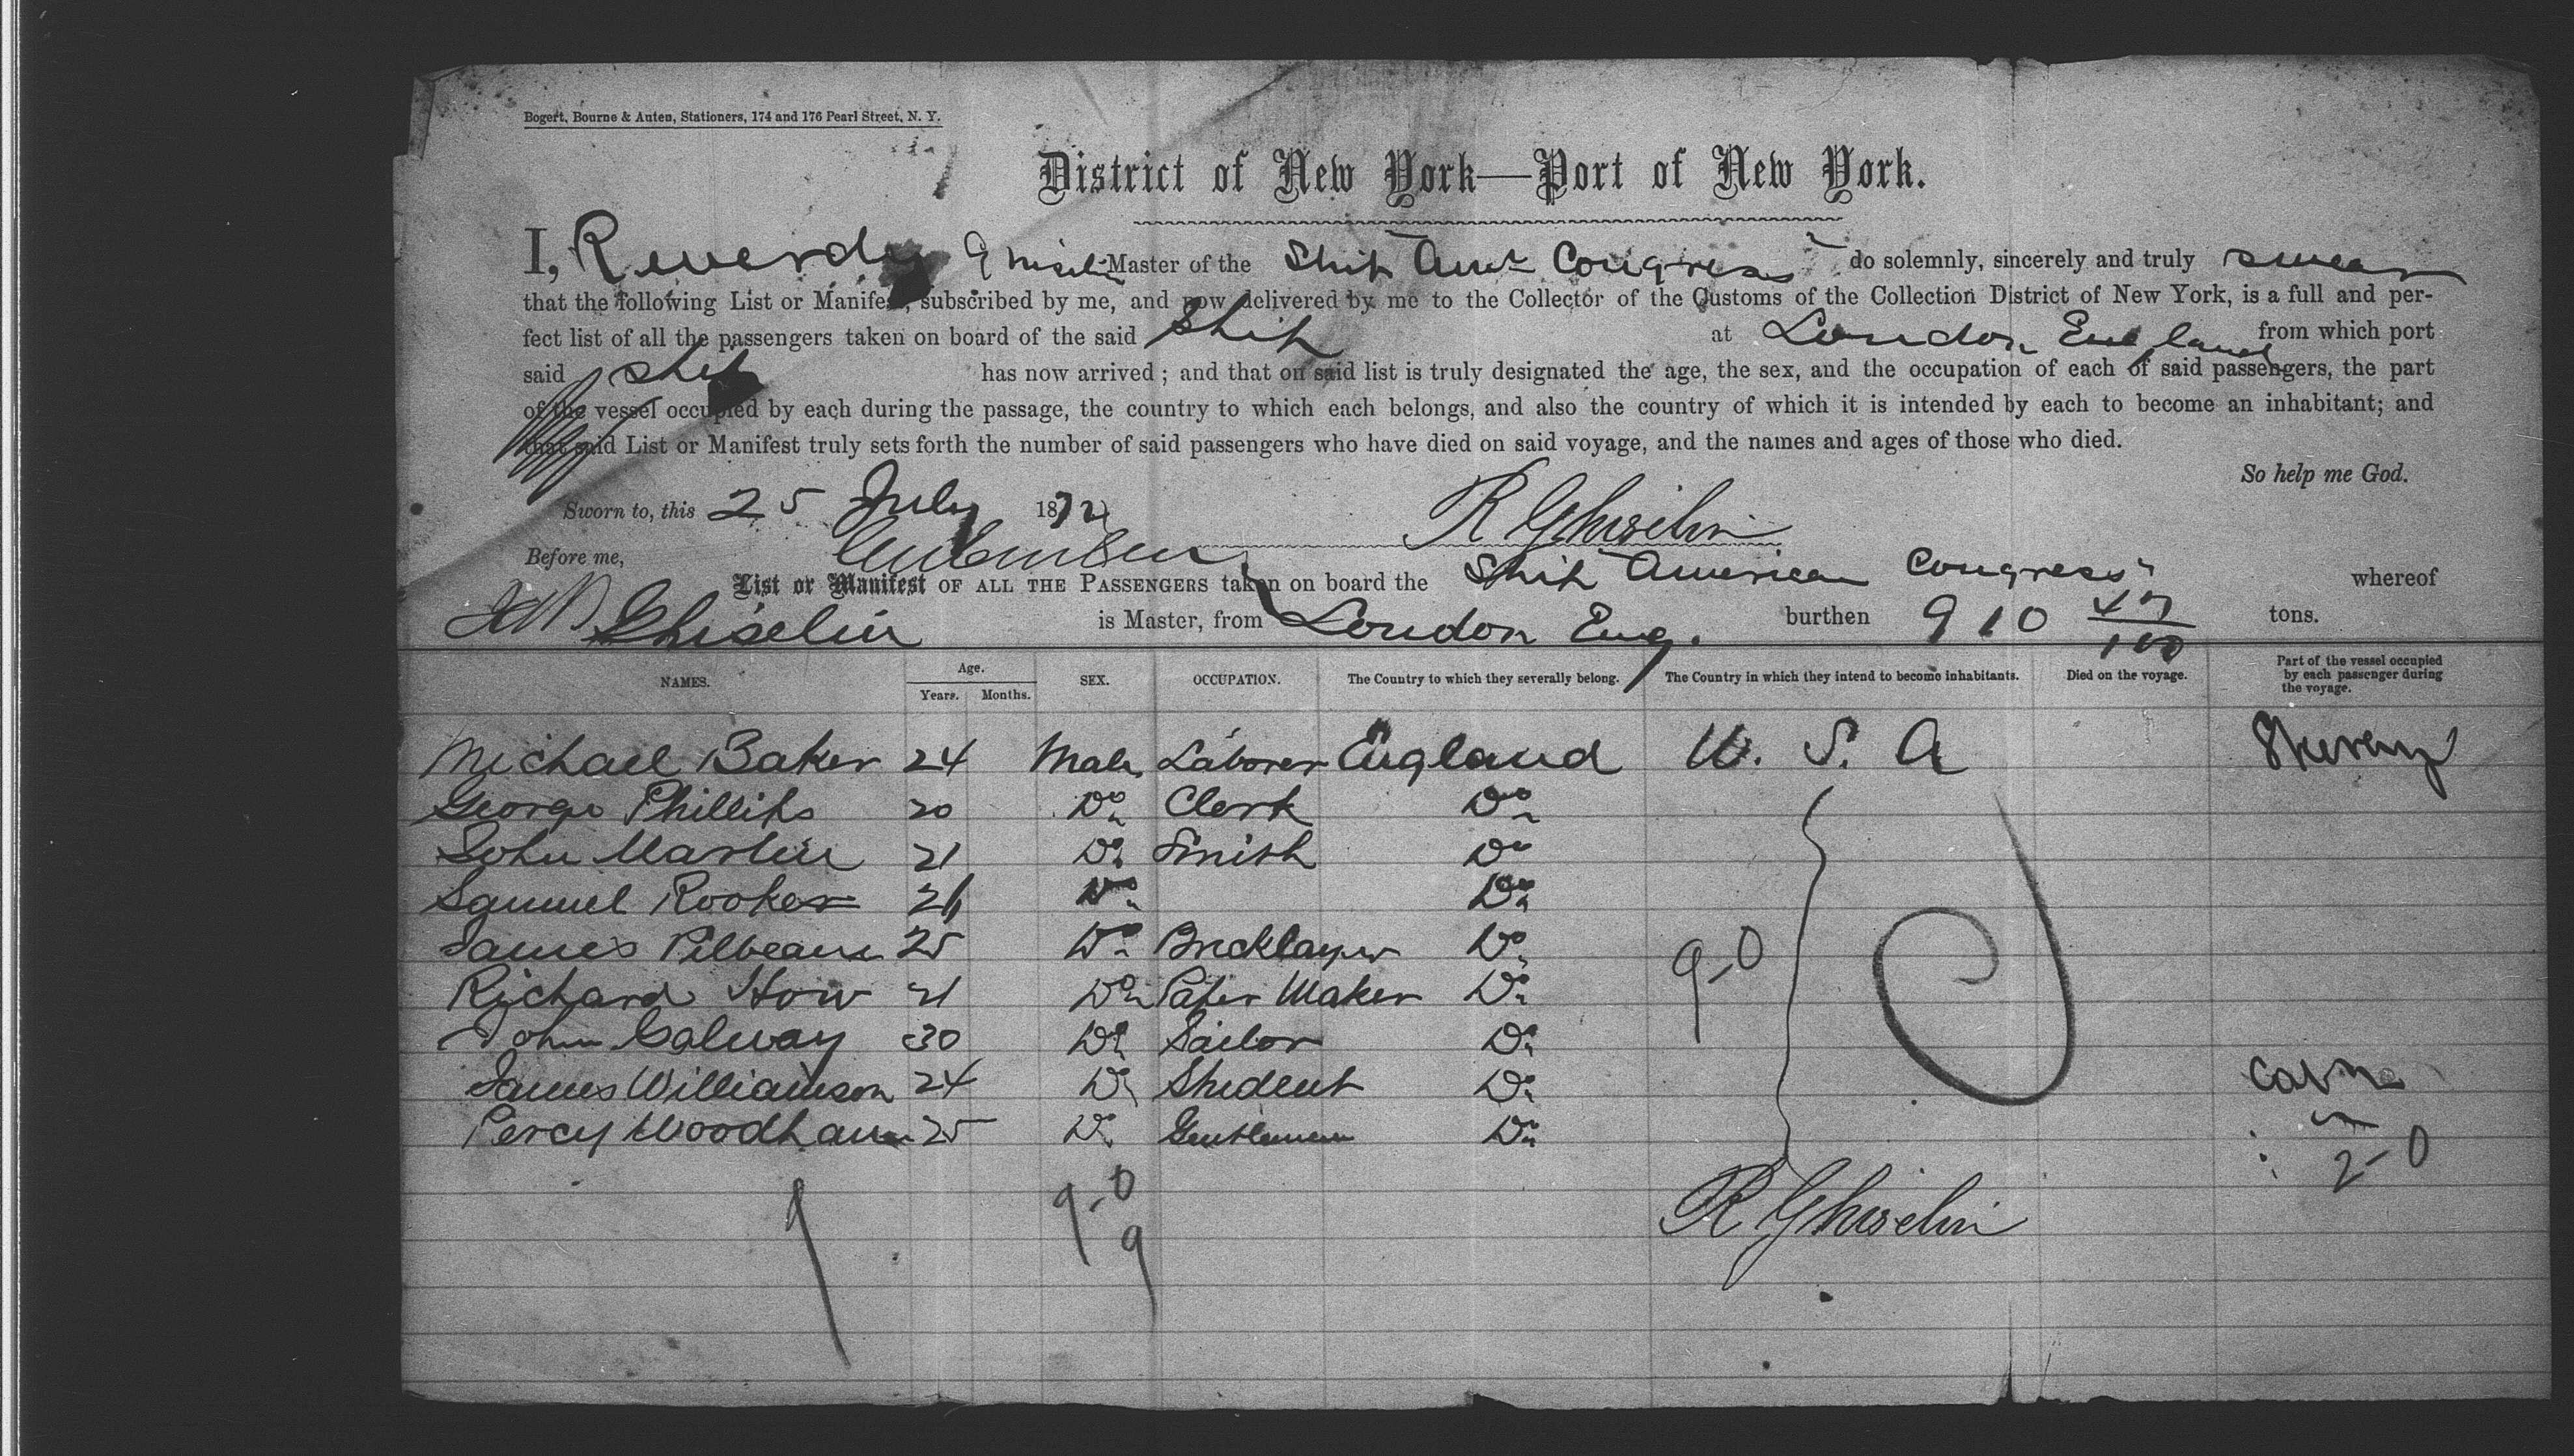 Bogert, Bourne & Auten, Stationers, 174 and 176 Pearl Street, N. Y.
District of New York—Port of New York.
I, Reverdy Ghiselin Master of the Ship "Amn Congress" do solemnly, sincerely and truly swear
that the following List or Manifest, subscribed by me, and now delivered by me to the Collector of the Customs of the Collection District of New York, is a full and per-
fect list of all the passengers taken on board of the said Ship at London England from which port
said ship has now arrived; and that on said list is truly designated the age, the sex, and the occupation of each of said passengers, the part
of the vessel occupied by each during the passage, the country to which each belongs, and also the country of which it is intended by each to become an inhabitant; and
that said List or Manifest truly sets forth the number of said passengers who have died on said voyage, and the names and ages of those who died.
So help me God.
Sworn to, this 25 July 1872 R Ghiselin
Before me,
List or Manifest OF ALL THE PASSENGERS taken on board the Ship "American Congress" whereof
Ghiselin is Master, from London Eng. burthen 910 47/100 tons.
NAMES. Age. Years. Months. SEX. OCCUPATION. The Country to which they severally belong. The Country in which they intend to become inhabitants. Died on the voyage. Part of the vessel occupied by each passenger during the voyage.
Michael Baker 24 Male Laborer England U. S. A
George Phillips 20 Do Clerk Do
John Martin 21 Do Smith Do
Samuel Rooker 26 Do Do
James Pilbeam 25 Do Bricklayer Do
Richard How 21 Do Paper Maker Do
9-0
John Galway 30 Do Sailor Do
James Williamson 24 Do Student Do Cabin
Percy Woodham 25 Do Gentleman Do
2-0
9 9-0
9
R Ghiselin